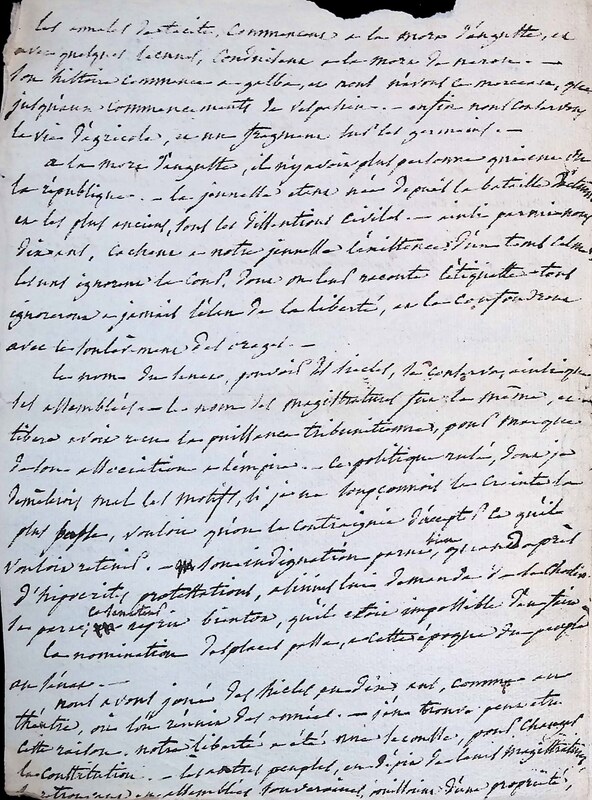 les annales de tacite, commencent a la mort d'auguste, et
avec quelques lacunes, conduisent a la mort de neron. —
son histoire commence a galba, et nous n'avons ce morceau, que
jusqu'aux commencements de vespasien. — enfin nous conservons
la vie d'agricole, et un fragment sur les germains. —
a la mort d'auguste, il n'y avoit plus personne qui eut vu
la république. — la jeunesse etoit née depuis la bataille d'actium
et les plus anciens, sous les dissentions civiles. — ainsi parmi nous
dix ans, cachent a notre jeunesse l'existence d'un tems calme
les uns ignorent la cour, dont on leur raconte l'étiquette — tous
ignoreront a jamais l'élan de la liberté, et le confondront
avec le soulèvement des orages. —
le nom du senat, pouvoir des siecles, se conserva, ainsi que
ses assemblées — le nom des magistratures fut le même, et
tibere avoit reçu la puissance tribunitienne, pour marque
de son association a l'empire. — ce politique rusé, dont je
demêlerois mal les motifs, si je ne soupconnois la crainte la
plus, vouloir qu'on le contraignit d'accepter ce qu'il
vouloit retenir. — son indignation parut bien, quand après
d'hipocrites protestations, asinius lui demanda de la choisir
sa part; reprit bientot, qu'il etoit impossible d'en faire
la nomination des places passa, a cette époque du peuple
au senat. —
nous avons joué des siecles en dix ans, comme au
théatre, où l'on réunit des années. — je trouve peut etre
cette raison, notre liberté a été une secousse, pour changer
la constitution. — les autres peuples, en dépit de leurs magistratures
se retrouvant en assemblées souveraines, jouissoient d'une propriété,